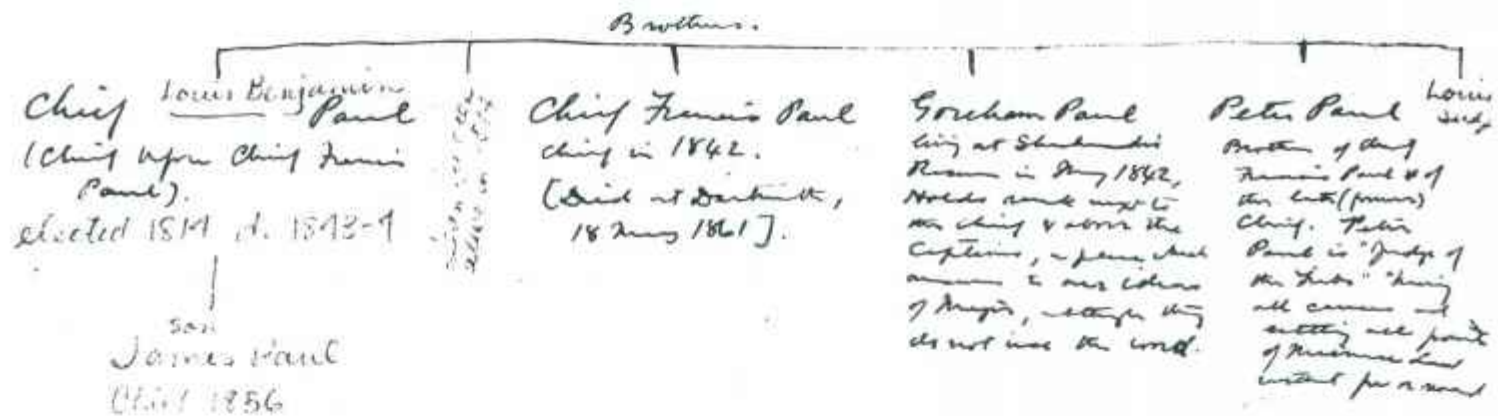 Brothers.
Chief Louis Benjamin Paul
(Chief before Chief Francis
Paul).
elected 1814 d. 1843-4
son
James Paul
Chief 1856
Chief Francis Paul
chief in 1842.
[Died at Dartmouth,
18 May 1861].
Goreham Paul
living at Shubenacadie
Reserve in May 1842,
Holds rank next to
the chief & above the
Captains, a place which
answers to our ideas
of Major, although they
do not use the word.
Peter Paul
Brother of Chief
Francis Paul & of
the late (former)
Chief. Peter
Paul is "Judge of
the Tribe" "having
all causes and
settling all points
of
Louis